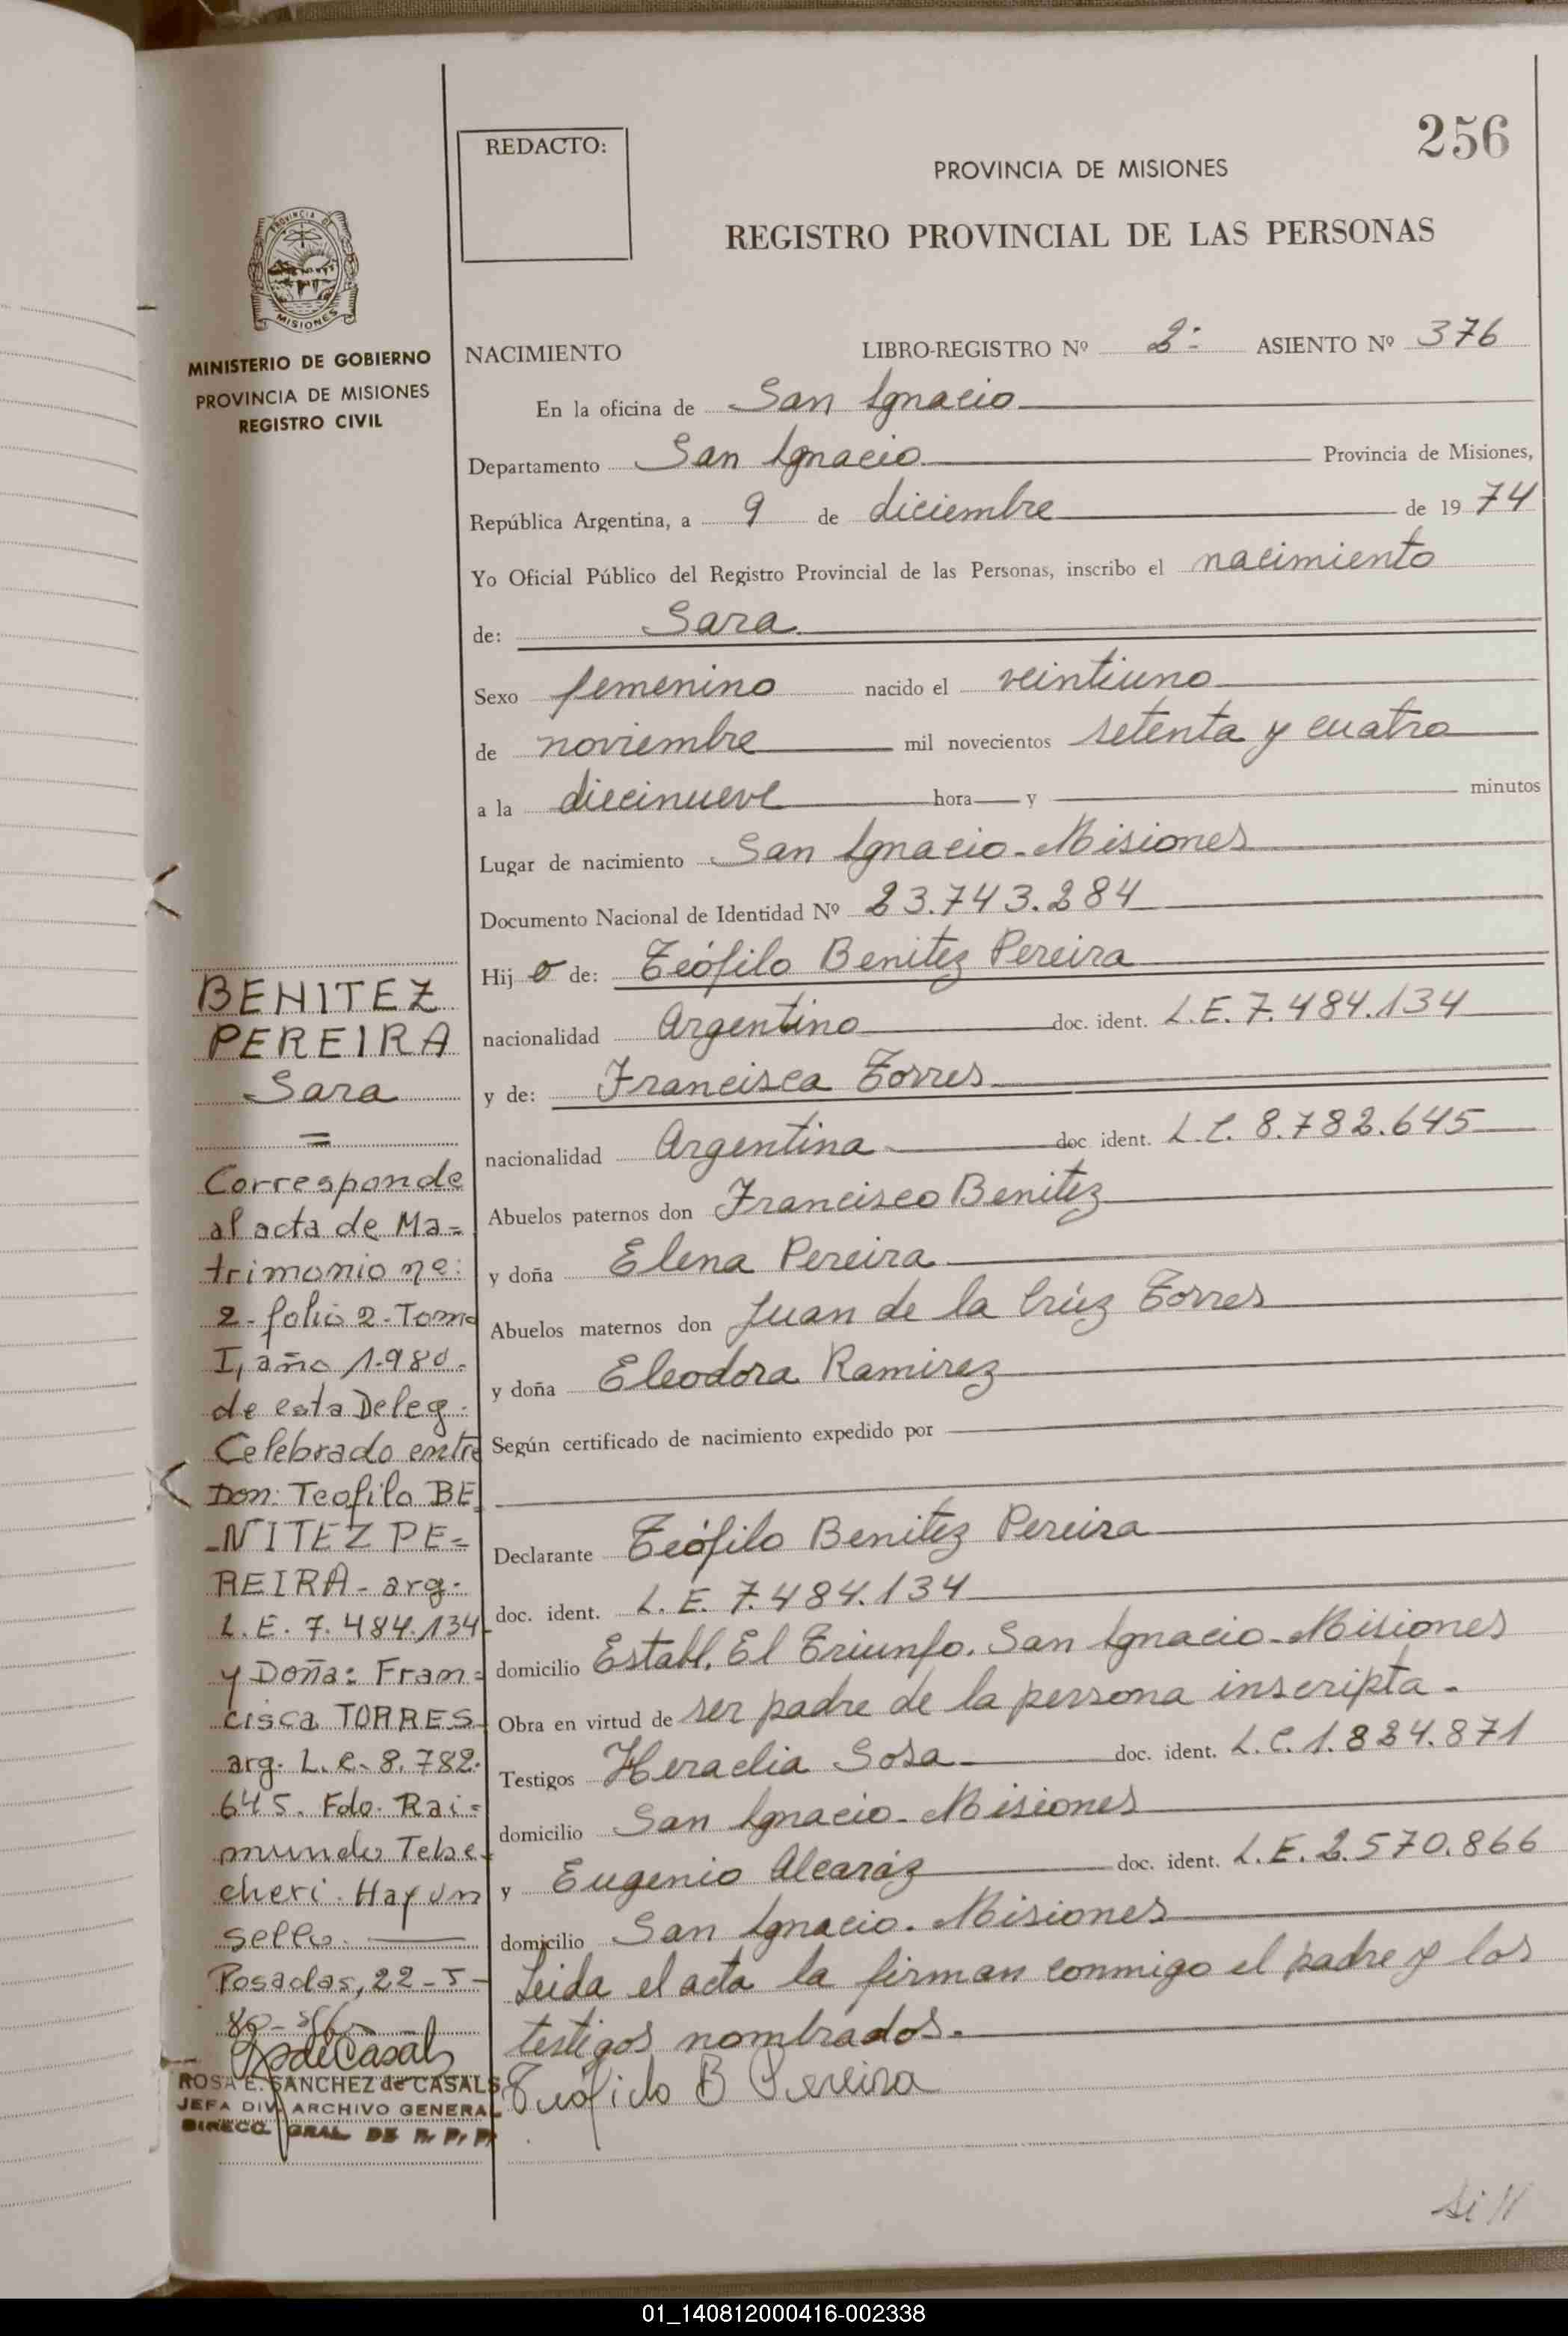 256
REDACTO:
PROVINCIA DE MISIONES
REGISTRO PROVINCIAL DE LAS PERSONAS
PROVINCIA DE
MISIONES
MINISTERIO DE GOBIERNO
PROVINCIA DE MISIONES
REGISTRO CIVIL
NACIMIENTO LIBRO-REGISTRO Nº 2º ASIENTO Nº 376
En la oficina de San Ignacio
Departamento San Ignacio Provincia de Misiones,
República Argentina, a 9 de diciembre de 1974
Yo Oficial Público del Registro Provincial de las Personas, inscribo el nacimiento
de: Sara
Sexo femenino nacido el veintiuno
de noviembre mil novecientos setenta y cuatro
a la diecinueve hora y minutos
Lugar de nacimiento San Ignacio - Misiones
Documento Nacional de Identidad Nº 23.743.284
Hijo de: Teófilo Benitez Pereira
nacionalidad Argentino doc. ident. L.E. 7.484.134
y de: Francisca Torres
nacionalidad Argentina doc ident. L.C. 8.782.645
Abuelos paternos don Francisco Benitez
y doña Elena Pereira
Abuelos maternos don Juan de la Crúz Torres
y doña Eleodora Ramirez
Según certificado de nacimiento expedido por
Declarante Teófilo Benitez Pereira
doc. ident. L.E. 7.484.134
domicilio Establ. El Triunfo. San Ignacio - Misiones
Obra en virtud de ser padre de la persona inscripta.
Testigos Heraclia Sosa doc. ident. L.C. 1.824.871
domicilio San Ignacio - Misiones
y Eugenio Alcaráz doc. ident. L.E. 2.570.866
domicilio San Ignacio. Misiones
Leida el acta la firman conmigo el padre y los
testigos nombrados.
Teofilo B Pereira
BENITEZ
PEREIRA
Sara
=
Corresponde
al acta de Ma=
trimonio nº:
2 - folio 2 - Tomo
I, año 1.980.
de esta Deleg.
Celebrado entre
Don: Teofilo BE
-NITEZ PE=
REIRA - arg.
L.E. 7.484.134
y Doña: Fran=
cisca TORRES
arg. L.C. 8.782.
645. Fdo. Rai=
mundo Tebe
cheri. Hay un
sello.
Posadas, 22-5-
80-
RdeCasals
ROSA E. SANCHEZ de CASALS
JEFA DIV. ARCHIVO GENERAL
DIRECC. GRAL DE R. P. P.
01_140812000416-002338